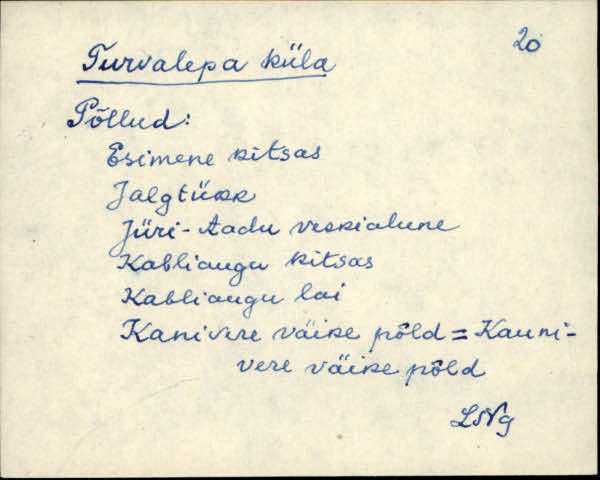 20
Turvalepa küla
Põllud:
Esimene kitsas
Jalgtükk
Jüri-Aadu veskialune
Kabliaugu kitsas
Kabliaugu lai
Kanivere väike põld = Kauni-
vere väike põld